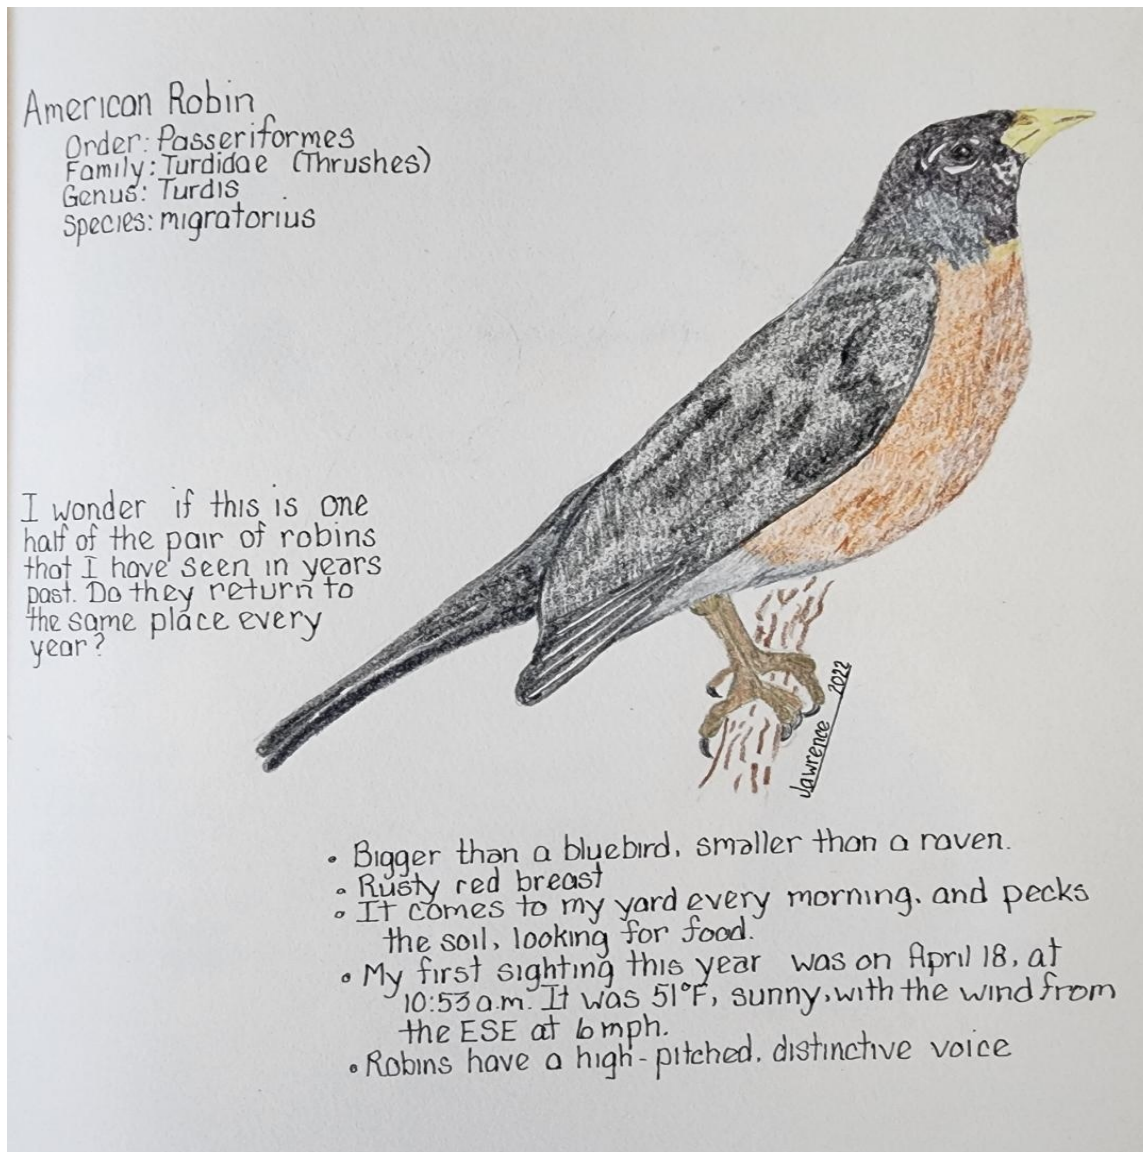 American Robin
Order: Passeriformes
Family: Turdidae (Thrushes)
Genus: Turdis
Species: migratorius
I wonder if this is one
half of the pair of robins
that I have seen in years
past. Do they return to
the same place every
year?
Lawrence 2022
• Bigger than a bluebird, smaller than a raven.
• Rusty red breast
• It comes to my yard every morning, and pecks
the soil, looking for food.
• My first sighting this year was on April 18, at
10:53 a.m. It was 51°F, sunny, with the wind from
the ESE at 6 mph.
• Robins have a high-pitched, distinctive voice